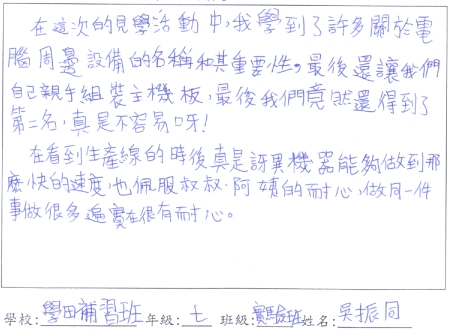 在這次的見學活動中,我學到了許多關於電
腦周邊設備的名稱和其重要性。最後還讓我們
自己親手組裝主機板,最後我們竟然還得到了
第二名,真是不容易呀!
在看到生產線的時後真是訝異機器能夠做到那
麼快的速度,也佩服叔叔、阿姨的耐心,做同一件
事做很多遍實在很有耐心。
學校:學田補習班 年級:七 班級:實驗班 姓名:吳振同